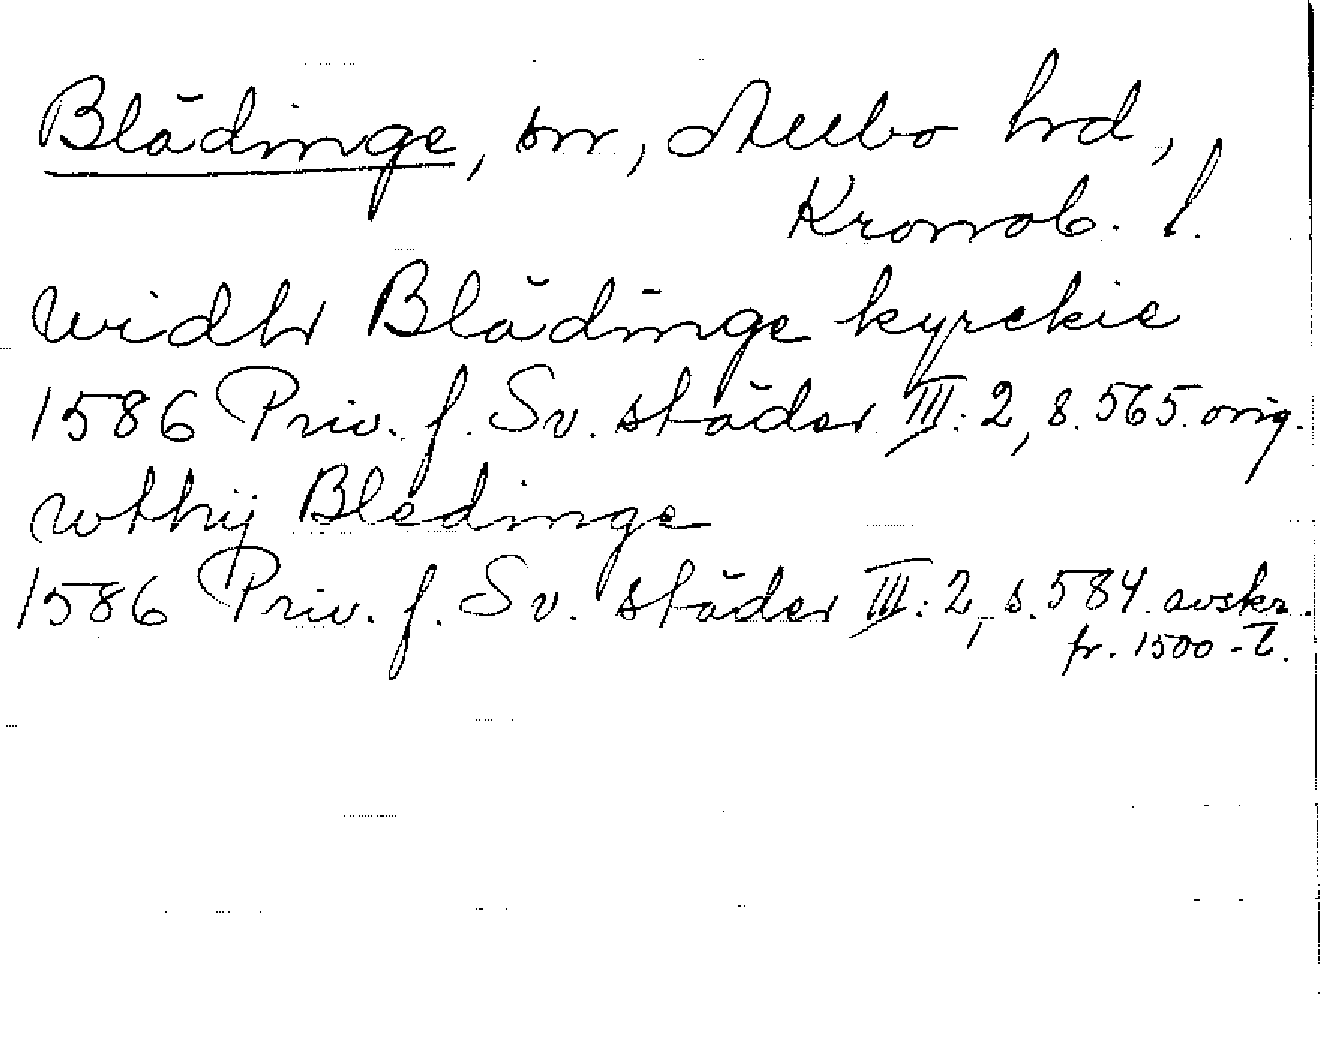 Blädinge, sn, Allbo hd,
Kronob. l.
widhr Blädinge kyrckie
1586 Priv. f. Sv. städer III: 2, s. 565. orig.
wthij Bledinge
1586 Priv. f. Sv. städer III: 2, s. 584. avskr.
fr. 1500-t.